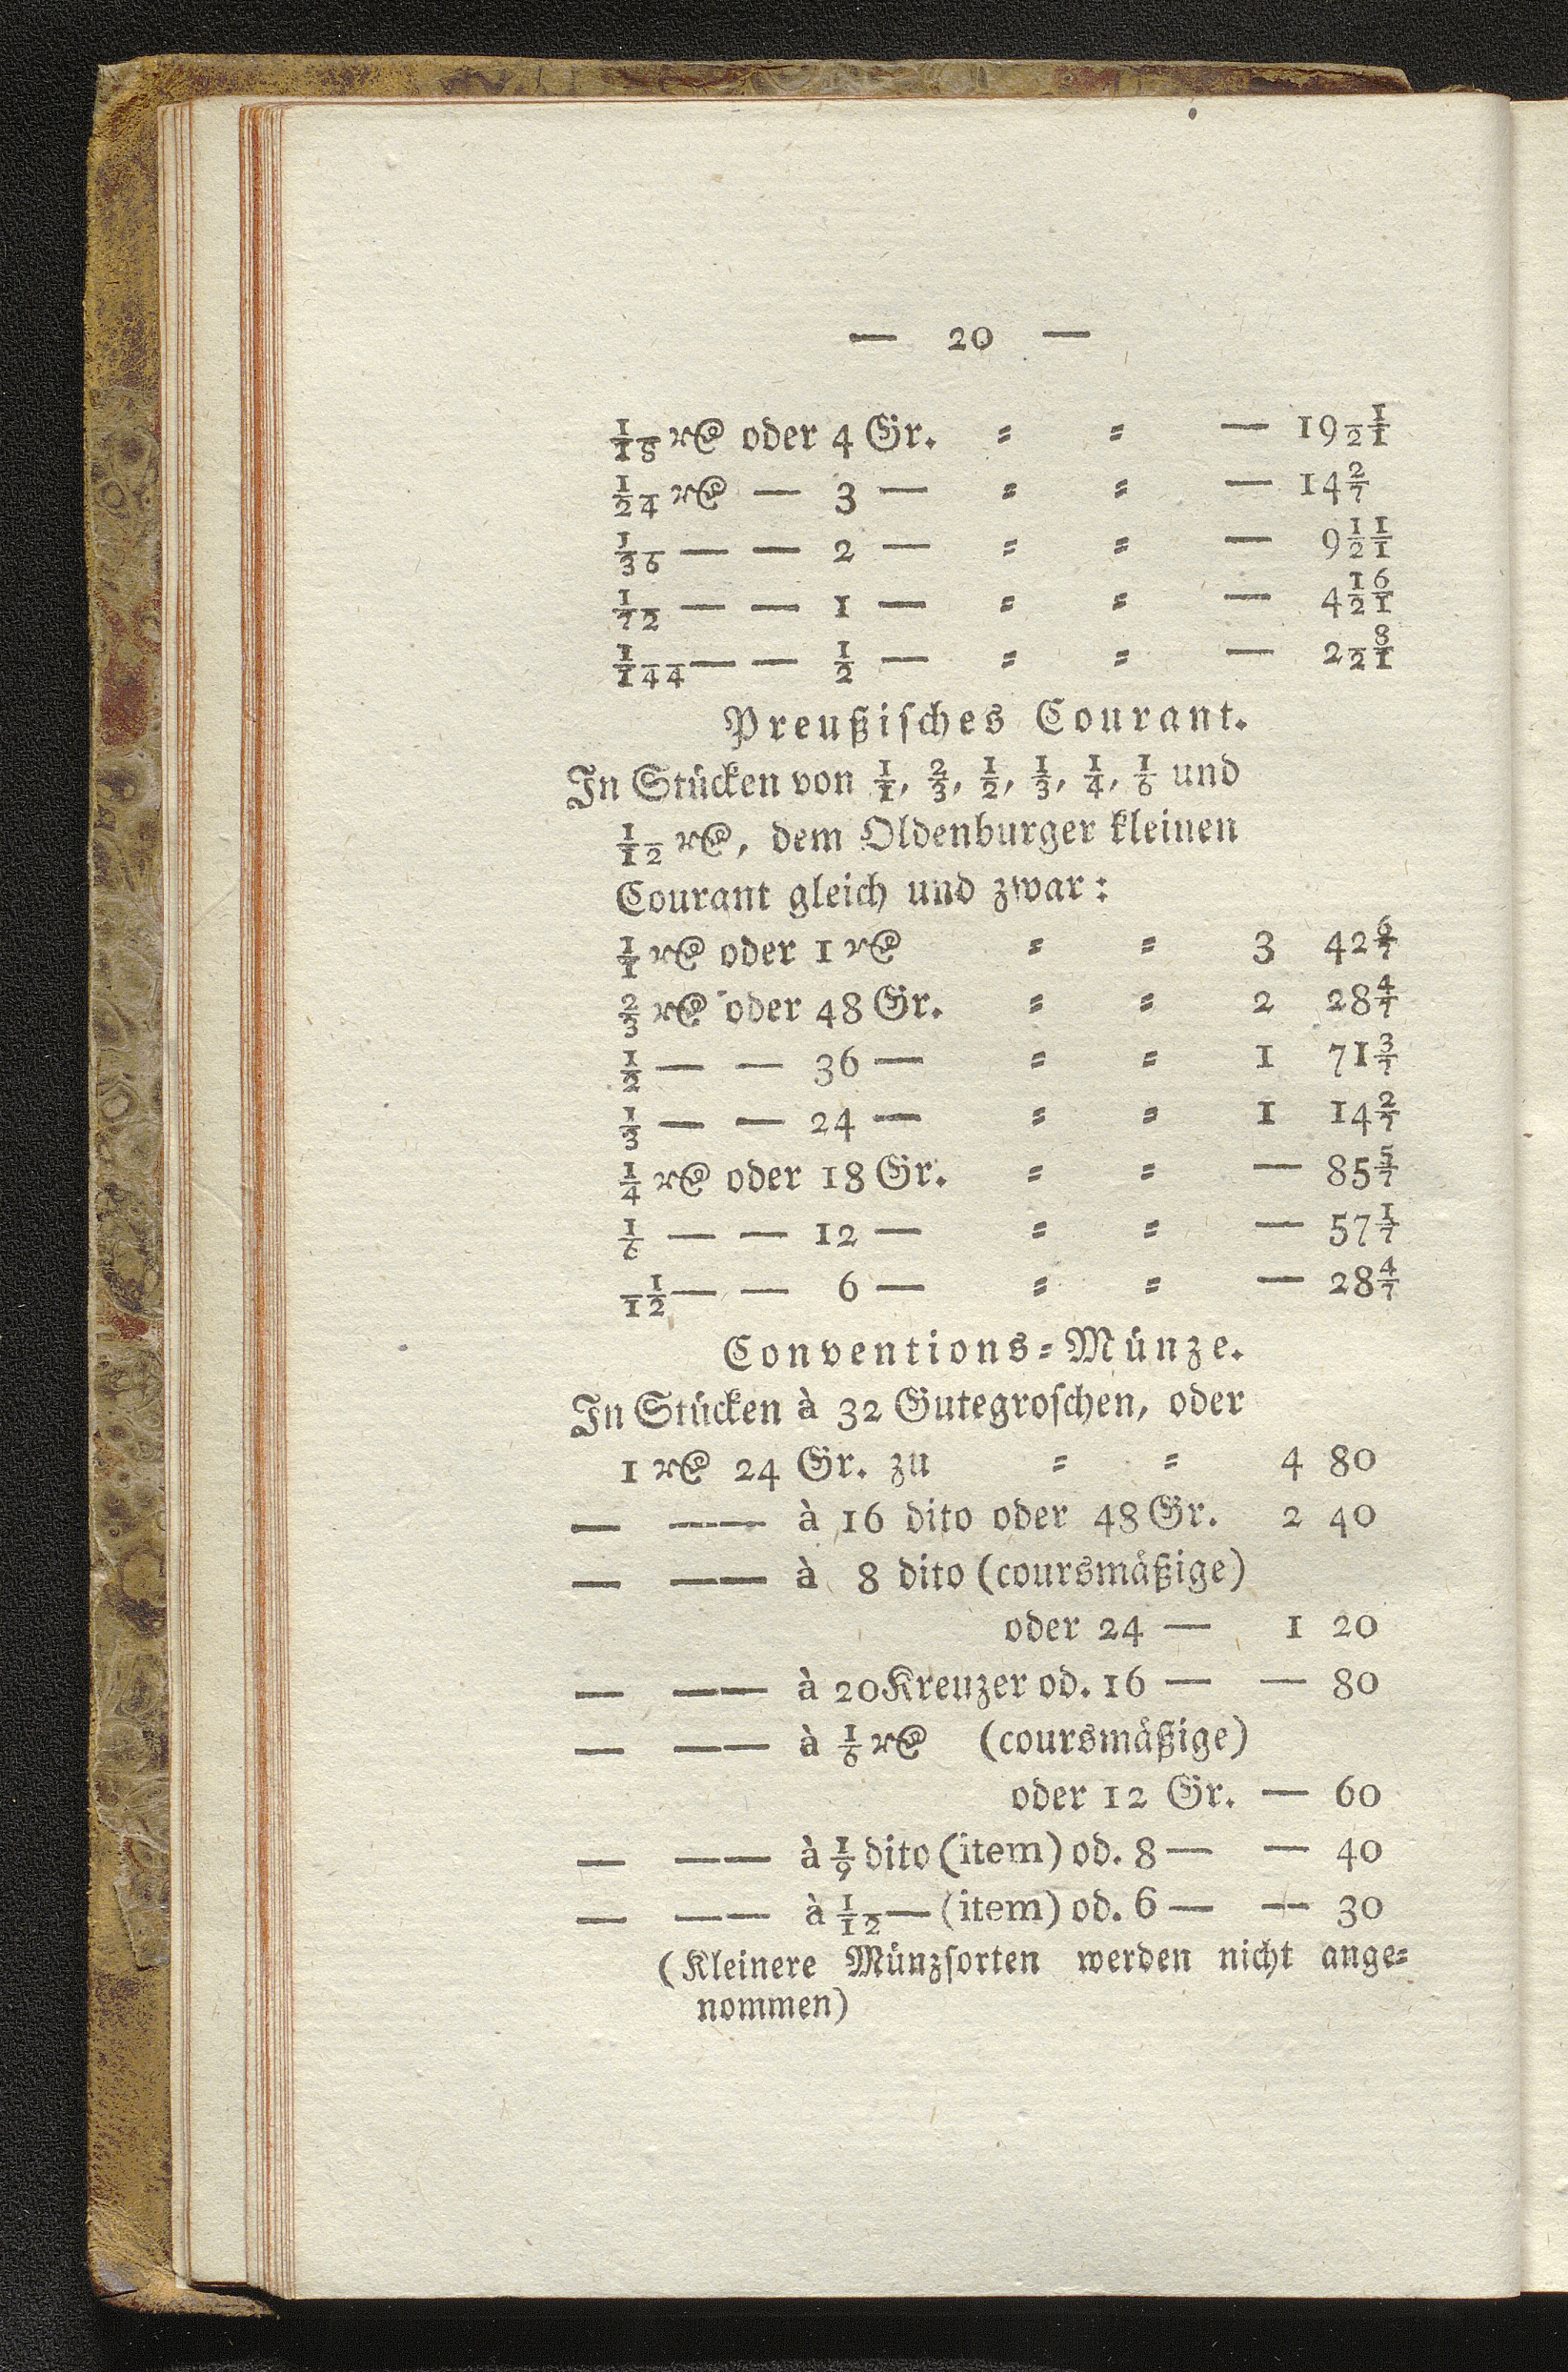 — 20 —
1/18 r℮ oder 4 Gr. = = — 19 1/21
1/24 r℮ — 3 — = = — 14 2/7
1/36 — — 2 — = = — 9 11/21
1/72 — — 1 — = = — 4 16/21
1/144 — — 1/2 — = = — 2 8/21
Preußiſches Courant.
In Stücken von 1/1, 2/3, 1/2, 1/3, 1/4, 1/6 und
1/12 r℮, dem Oldenburger kleinen
Courant gleich und zwar:
1/1 r℮ oder 1 r℮ = = 3 42 6/7
2/3 r℮ oder 48 Gr. = = 2 28 4/7
1/2 — — 36 — = = 1 71 3/7
1/3 — — 24 — = = 1 14 2/7
1/4 r℮ oder 18 Gr. = = — 85 5/7
1/6 — — 12 — = = — 57 1/7
1/12 — — 6 — = = — 28 4/7
Conventions=Münze.
In Stücken à 32 Gutegroſchen, oder
1 r℮ 24 Gr. zu = = 4 80
— —— à 16 dito oder 48 Gr. 2 40
— —— à 8 dito (coursmäßige)
oder 24 — 1 20
— —— à 20 Kreuzer od. 16 — — 80
— —— à 1/6 r℮ (coursmäßige)
oder 12 Gr. — 60
— —— à 1/9 dito (item) od. 8 — — 40
— —— à 1/12 — (item) od. 6 — — 30
(Kleinere Münzſorten werden nicht ange=
nommen)